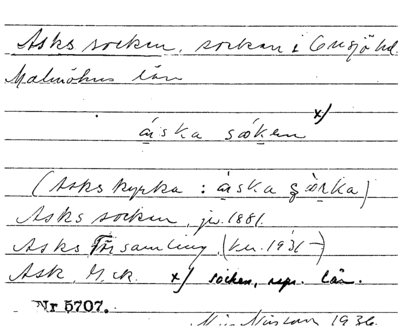 Asks socken, socken i Onsjö hd.
Malmöhus län
áska sóken x)
(Asks kyrka : áska çørka)
Asks socken, je. 1881.
Asks församling (ku. 1931-)
Ask, G.ck. x) socken, repr. län.
Nr 5707.
Nilsson 1936